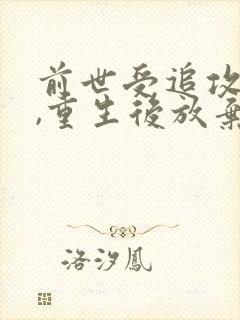 前世受追攻
,重生後放棄
洛汐鳳